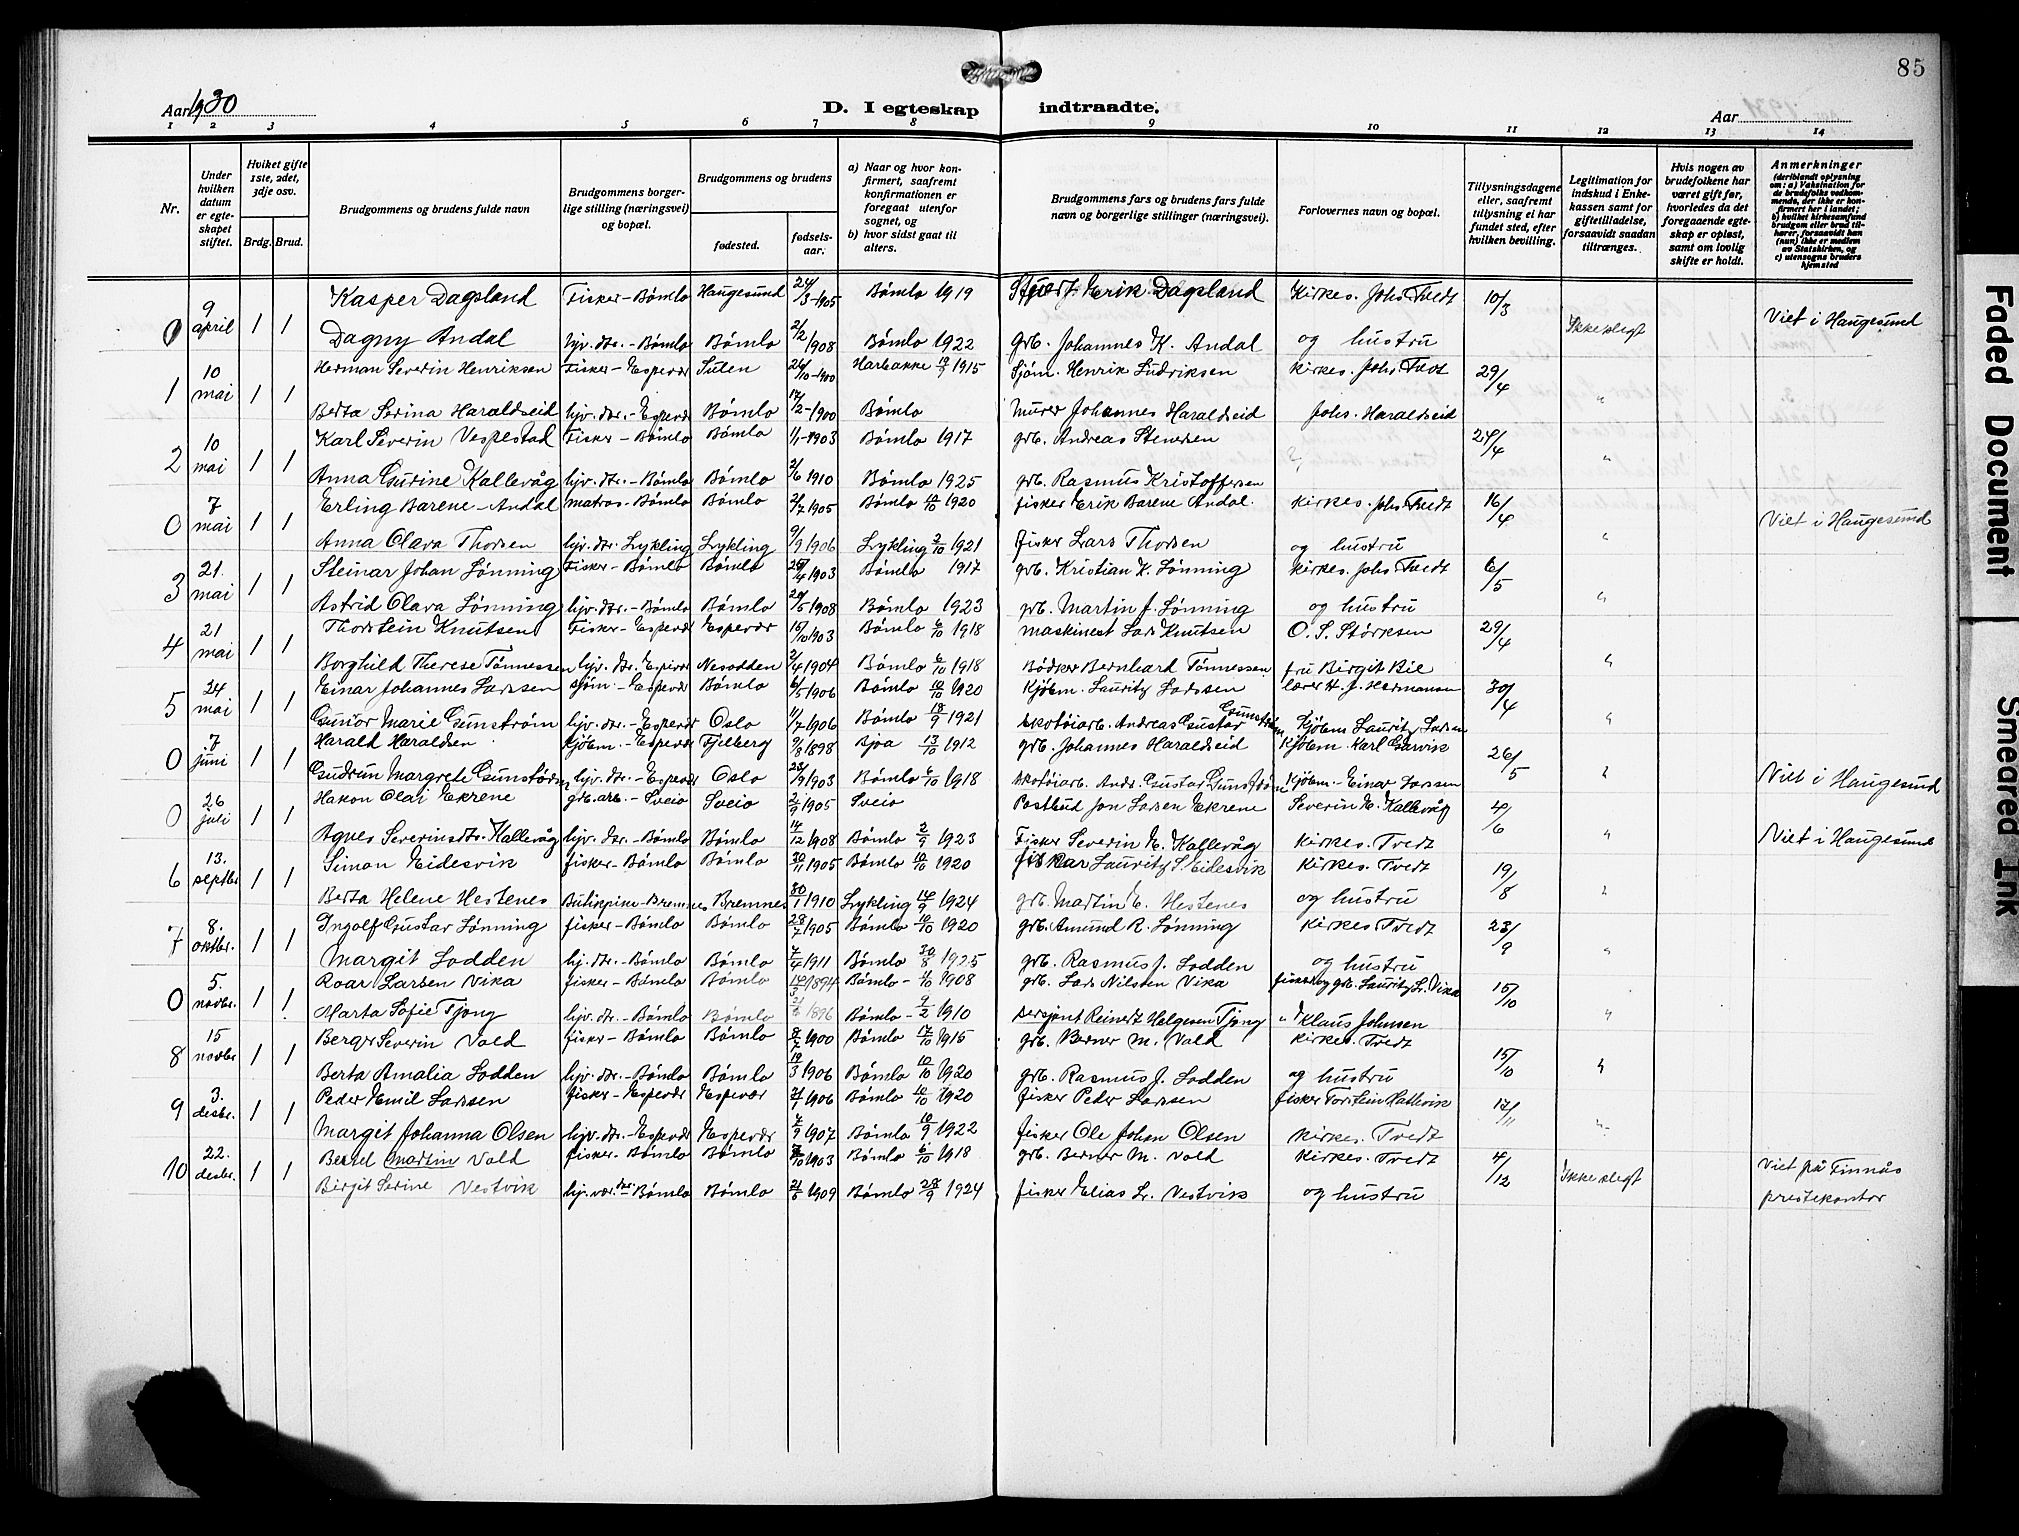 85
Aar 1930
D. Iegteskap indtraadte.
Aar
1 2 3 4 5 6 7 8 9 10 11 12 13 14
Nr.
Under hvilken datum er egteskapet stiftet.
Hviket gifte 1ste, 2det, 3dje osv.
Brdg. Brud.
Brudgommens og brudens fulde navn
Brudgommens borgerlige stilling (næringsvei) og bopæl.
Brudgommens og brudens
fødested.
fødselsaar.
a) Naar og hvor konfirmert, saafremt konfirmationen er foregaat utenfor sognet, og
b) hvor sidst gaat til alters.
Brudgommens fars og brudens fars fulde navn og borgerlige stillinger (næringsvei).
Forlovernes navn og bopæl.
Tillysningsdagene eller, saafremt tillysning ei har fundet sted, efter hvilken bevilling.
Legitimation for indskud i Enkekassen samt for giftetilladelse, forsaavidt saadan tiltrænges.
Hvis nogen av brudefolkene har været gift før, hvorledes da det foregaaende egteskap er opløst, samt om lovlig skifte er holdt.
Anmerkninger (deriblandt oplysning om: a) Vaksination for de brudefolks vedkommende, der ikke er konfirmert her i landet; b) hvilket kirkesamfund brudgom eller brud tilhører, forsaavidt han (hun) ikke er medlem av Statskirken, og c) utensogns bruders hjemsted
0 9 april 1 1 Kasper Dagsland Fisker - Bømlo Haugesund 24/3-1905 Bømlo 1919 Erik Dagsland Kirkes. Johs Tvedt 10/3 Ikke slegt Viet i Haugesund
Dagny Andal hjv. dtr. - Bømlo Bømlo 2/2 1908 Bømlo 1922 grb. Johannes K. Andal og hustru
1 10 mai 1 1 Herman Severin Henriksen Fisker - Espevær 26/10-1900 1915 Sjøm. Henrik Ludriksen Kirkes. Johs Tvedt 29/4 "
Berta Serina Haraldseid hjv. dtr. - Espevær Bømlo 17/2-1900 Bømlo Murer Johannes Haraldseid Johs. Haraldseid
2 10 mai 1 1 Karl Severin Vespestad Fisker - Bømlo Bømlo 1/1-1903 Bømlo 1917 grb. Andreas Stensen 24/4 "
Anna Gurine Kallevåg hjv. dtr. - Bømlo Bømlo 2/6 1910 Bømlo 1925 grb. Rasmus Kristoffersen
0 7 mai 1 1 Erling Barene-Andal matros - Bømlo Bømlo 2/7 1905 Bømlo 10/10 1920 fisker Erik Barene Andal. Kirkes. Johs Tvedt 16/4 " Viet i Haugesund
Anna Olava Thorsen hjv. dtr. Lykling Lykling 9/9 1906 Lykling 2/10 1921 fisker Lars Thorsen og hustru
3 21. mai 1 1 Steinar Johan Lønning Fisker - Bømlo Bømlo 25/4 1903 Bømlo 1917 grb. Kristian K. Lønning Kirkes. Johs Tvedt 6/5 "
Astrid Olava Lønning hjv. dtr. - Bømlo Bømlo 24/5 1908 Bømlo 1923 grb. Martin J. Lønning og hustru
4 21 mai 1 1 Thorstein Knutsen Fisker - Espevær Espevær 15/10 1903 Bømlo 6/10 1918 maskinest Lars Knutsen O. S. Størksen 29/4 "
Borghild Therese Tønnessen hjv. dtr. Espevær Nesodden 2/4 1904 Bømlo 6/10 1918 Bødker Bernhard Tønnessen fru Birgit Bie
5 24 mai 1 1 Einar Johannes Larssen sjøm - Espevær Bømlo 6/5 1906 Bømlo 10/10 1920 Kjøbm. Lauritz Larssen lærer H. J. Hermansen 30/4 "
Gunvor Marie Gunstrøm hjv. dtr. - Espevær Oslo 11/7 1906 Bømlo 18/9 1921 skotøiarb. Andreas Gustav Gunstrøm Kjøbm Lauritz Larsen
0 7 juni 1 1 Harald Haraldsen Kjøbm. - Espevær Fjelberg 2/3 1898 Bjoa 13/10 1912 grb. Johannes Haraldseid Kjøbm. Karl Garvik 26/5 " Viet i Haugesund
Gudrun Margrete Gunstrøm hjv. dtr. - Espevær Oslo 28/9 1903 Bømlo 6/10 1918 skotøiarb. Andr. Gustav Gunstrøm Kjøbm - Einar Larssen
0 26 juli 1 1 Hakon Olai Ekrene grb. arb. - Sveio Sveio 2/9 1905 Sveio Postbud Jon Larsen Ekrene Severin N. Kallevåg 4/6 " Viet i Haugesund
Agnes Severinsdtr. Kallevåg hjv. dtr. - Bømlo Bømlo 14/12 1908 Bømlo 2/9 1923 Fisker Severin N. Kallevåg Kirkes. Tvedt
6 13. septbr 1 1 Simon Eidesvik fisker - Bømlo Bømlo 30/11 1905 Bømlo 10/10 1920 fiskar Lauritz S. Eidesvik Kirkes. Tvedt 19/8 "
Berta Helene Hestenes Bremnes Bremnes 30/1 1910 Lykling 14/9 1924 grb. Martin E. Hestenes og hustru
7 8. oktbr. 1 1 Ingolf Gustav Lønning fisker - Bømlo Bømlo 28/7 1905 Bømlo 10/10 1920 grb. Amund R. Lønning Kirkes. Tvedt 23/9 "
Margit Lodden hj. dtr. - Bømlo Bømlo 7/4 1911 Bømlo 30/8 1925 grb. Rasmus J. Lodden og hustru
0 5. novbr. 1 1 Roar Larsen Vika fisker - Bømlo Bømlo 14/3 1894 Bømlo - 4/10 1908 grb. Lars Nilsen Vika fisker og grb. Lauritz L. Vika 15/10 "
Marta Sofie Tjong hjv. dtr. - Bømlo Bømlo 1896 Bømlo - 1910 sersjant Reinert Helgesen Tjong " Klaus Johnsen
8 15 novbr 1 1 Berge Severin Vold fisker - Bømlo Bømlo 8/7 1900 Bømlo 17/10 1915 grb. Berner M. Vald Kirkes. Tvedt 15/10 "
Berta Amalia Lodden hjv. dtr. - Bømlo Bømlo 19/3 1906 Bømlo 10/10 1920 grb. Rasmus J. Lodden og hustru
9 3. desbr. 1 1 Peder Emil Larssen fisker - Espevær Espevær 2/1 1906 Bømlo 10/10 1920 fisker Peder Larssen fisker Torstein 12/11 "
Margit Johanna Olsen hjv. dtr. - Espevær Espevær 2/9 1907 Bømlo 10/9 1922 fisker Ole Johan Olsen Kirkes. Tvedt
10 22. desbr. 1 1 Bertel Martin Vold fisker - Bømlo Bømlo 7/10 1903 Bømlo 6/10 1918 grb. Berner M. Vold Kirkes. Tvedt 4/12 Ikke slegt Viet på Finnås
Birgit Serine Vestvik hjv. vær. dtr. Bømlo Bømlo 21/5 1909 Bømlo 28/9 1924 fisker Elias L. Vestvik og hustru prestekontor
Faded Document
Smeared Ink